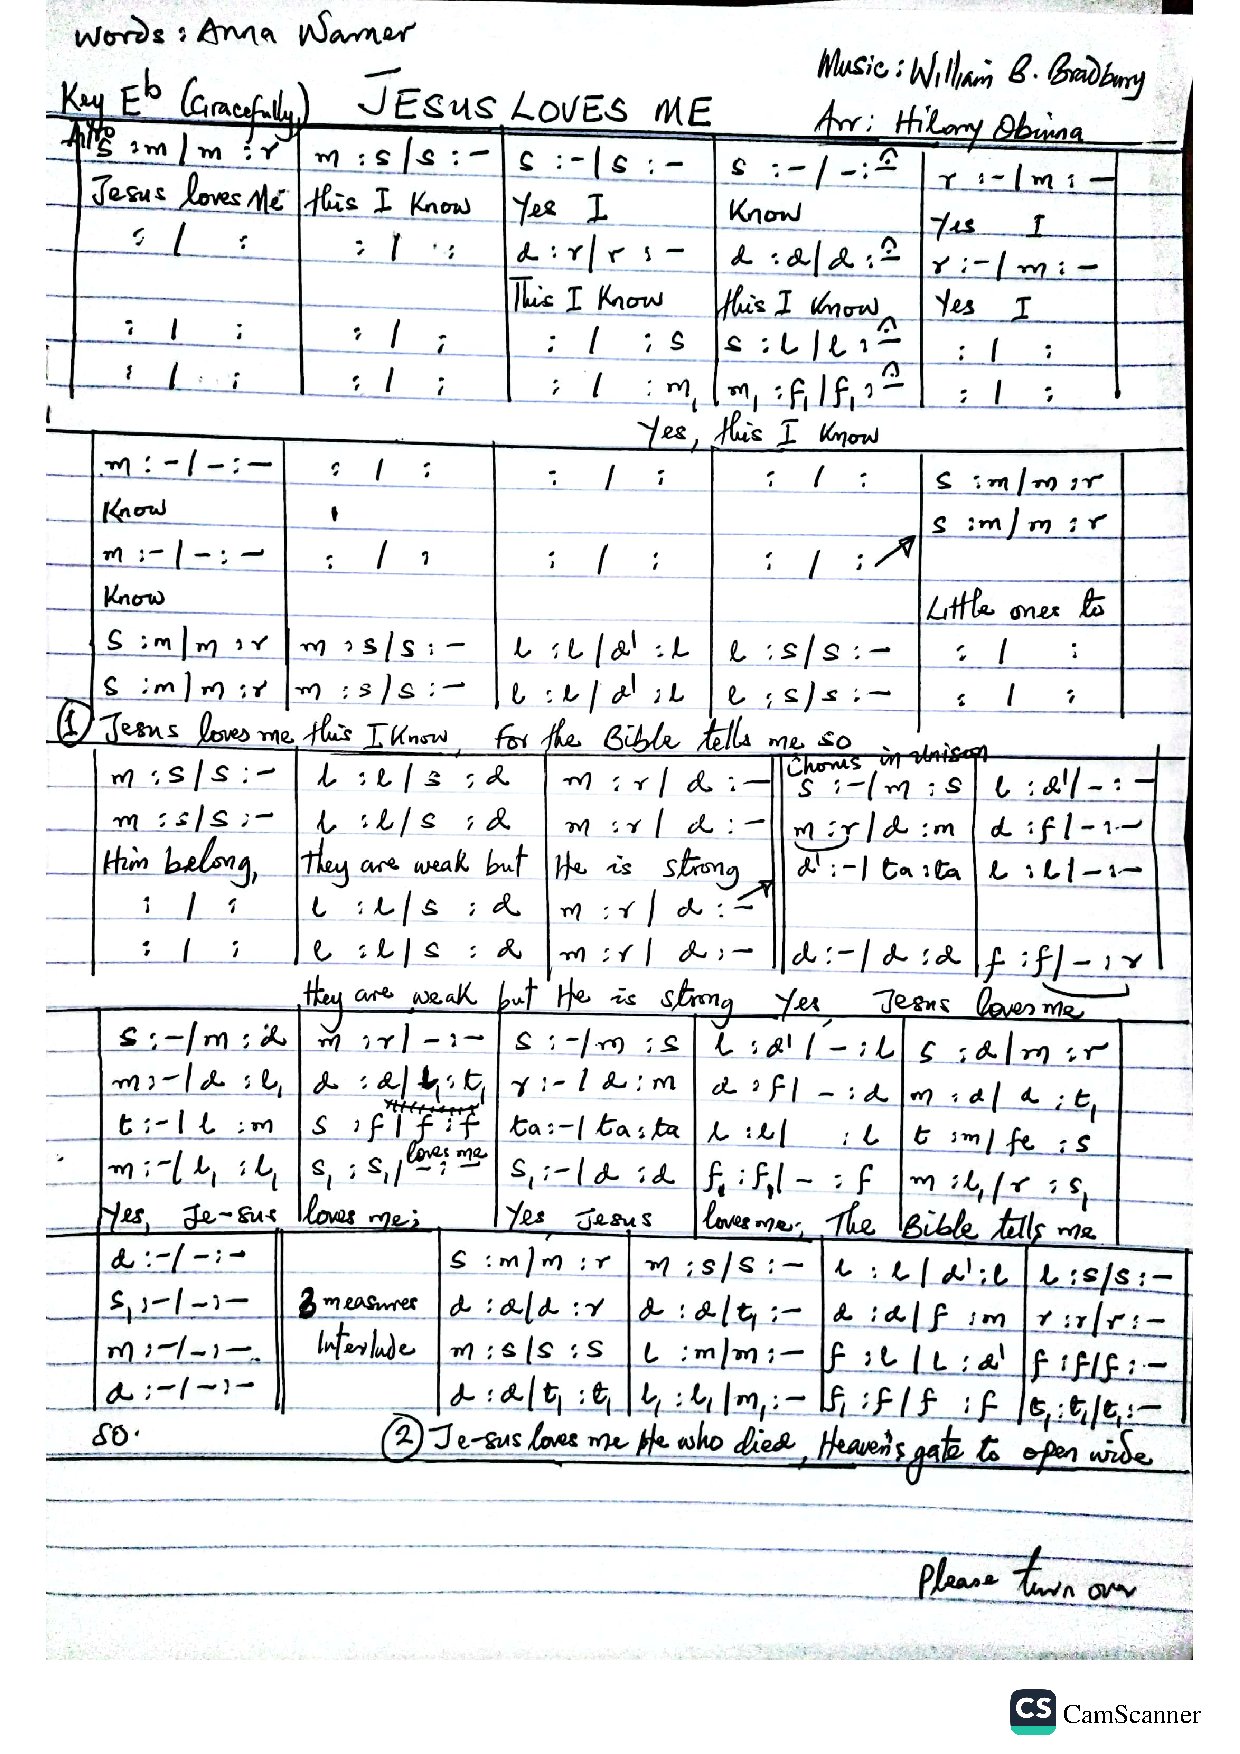 Words: Anna Warner
Music: William B. Bradbury
Key Eb (Gracefully) JESUS LOVES ME
Arr: Hilary Obinna
s :m / m :r | m :s / s :- | s :- / s :- | s :- / - :- | r :- / m :-
Jesus loves Me | this I Know | Yes I | Know | Yes I
: / : | : / : | d :r / r :- | d :d / d :- | r :- / m :-
This I Know | this I Know | Yes I
: / : | : / : | : / :s | s :l / l :- | : / :
: / : | : / : | : / :m₁ | m₁ :f₁ / f₁ :- | : / :
Yes, this I Know
m :- / - :- | : / : | : / : | : / : | s :m / m :r
Know | s :m / m :r
m :- / - :- | : / : | : / : | : / :
Know | Little ones to
s :m / m :r | m :s / s :- | l :l / d' :l | l :s / s :- | : / :
s :m / m :r | m :s / s :- | l :l / d' :l | l :s / s :- | : / :
① Jesus loves me this I Know, for the Bible tells me so
Chorus in unison
m :s / s :- | l :l / s :d | m :r / d :- | s :- / m :s | l :d' / - :-
m :s / s :- | l :l / s :d | m :r / d :- | m :r / d :m | d :f / - :-
Him belong, | they are weak but | He is strong | d' :- / ta :ta | l :l / - :-
: / : | l :l / s :d | m :r / d :-
: / : | l :l / s :d | m :r / d :- | d :- / d :d | f :f / - :r
they are weak but He is strong Yes, Jesus loves me
s :- / m :d | m :r / - :- | s :- / m :s | l :d' / - :l | s :d / m :r
m :- / d :l₁ | d :d / l₁ :t₁ | r :- / d :m | d :f / - :d | m :d / d :t₁
t :- / l :m | s :f / f :f | ta :- / ta :ta | l :l / :l | t :m / fe :s
loves me
m :- / l₁ :l₁ | s₁ :s₁ / - :- | s₁ :- / d :d | f₁ :f₁ / - :f | m :l₁ / r :s₁
Yes, Je-sus | loves me; | Yes Jesus | loves me; The | Bible tells me
d :- / - :- | s :m / m :r | m :s / s :- | l :l / d' :l | l :s / s :-
s₁ :- / - :- | 3 measures | d :d / d :r | d :d / t₁ :- | d :d / f :m | r :r / r :-
m :- / - :- | Interlude | m :s / s :s | l :m / m :- | f :l / l :d' | f :f / f :-
d :- / - :- | d :d / t₁ :t₁ | l₁ :l₁ / m₁ :- | f₁ :f / f :f | t₁ :t₁ / t₁ :-
so. ② Je-sus loves me He who died, Heaven's gate to open wide
Please turn over
CS CamScanner